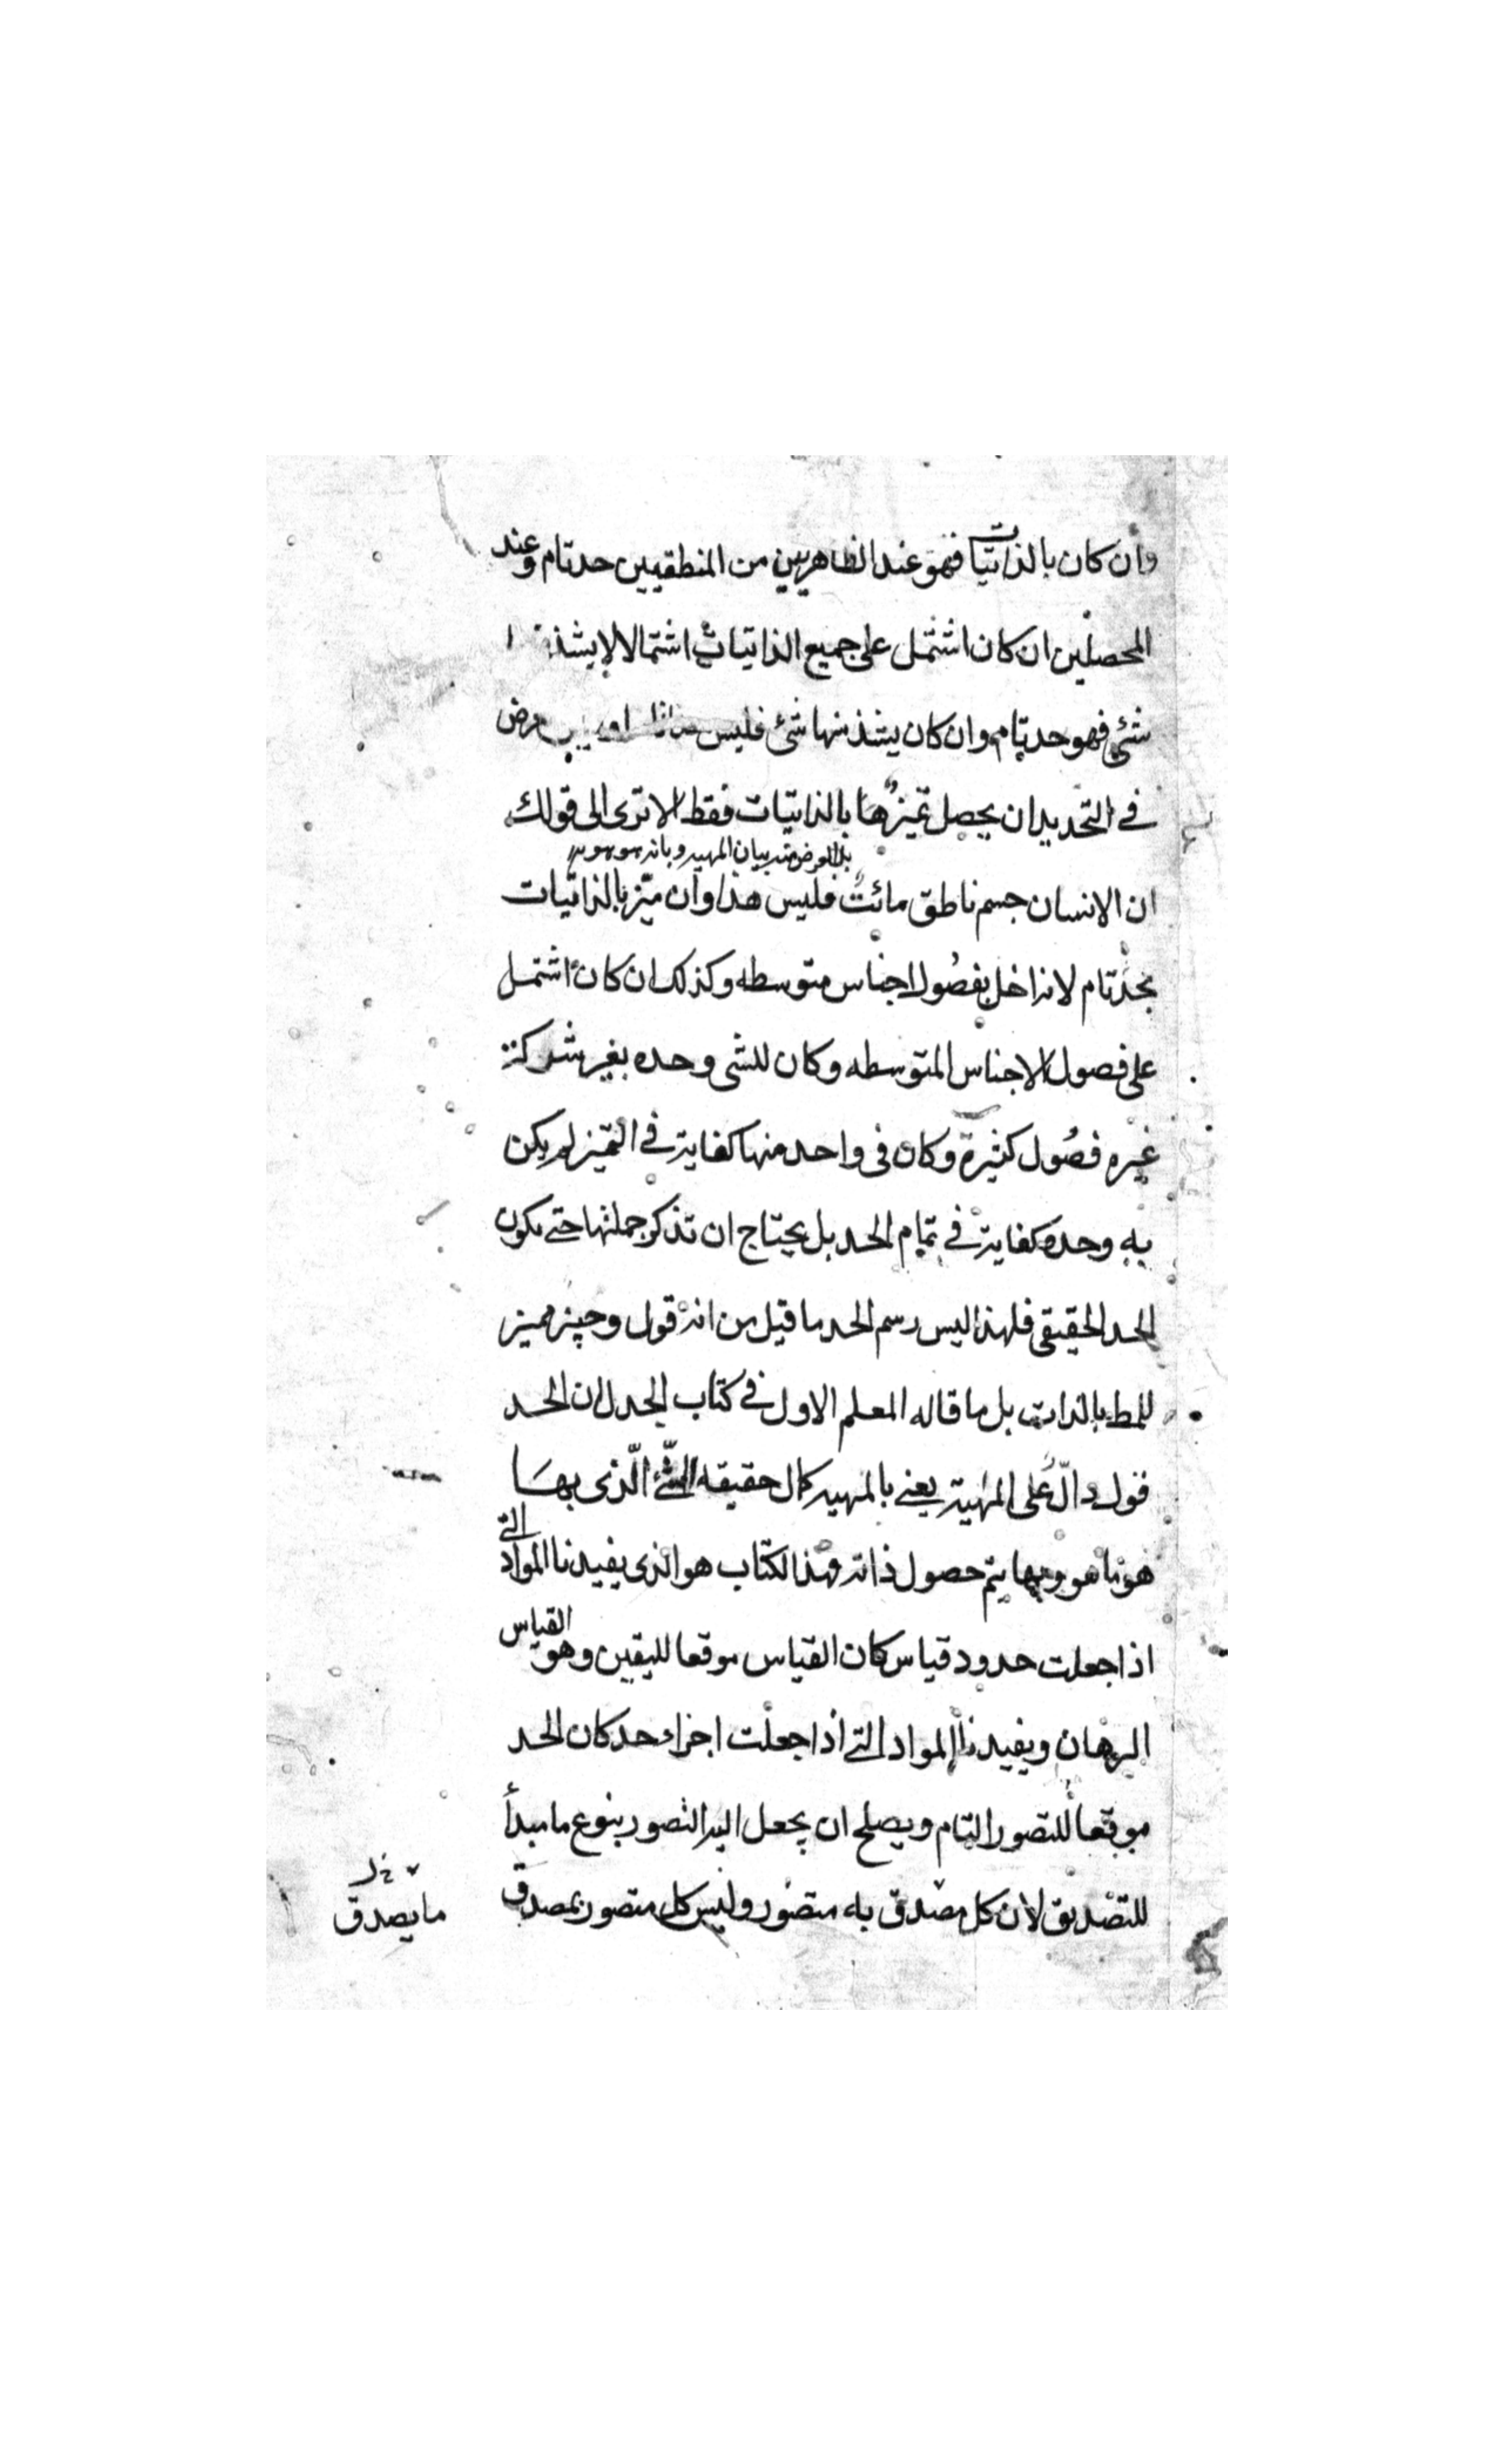 وان كان بالذاتيات فهو عند الظاهريين من المنطقيين حد تام وعند
المحصلين ان كان اشتمل على جميع الذاتيات اشتمالا لا يشذ
شئ فهو حد تام وان كان يشذ منها شئ فليس
في التحديد ان يحصل تميزها بالذاتيات فقط الا ترى الى قولك
بيان المهيه
ان الانسان جسم ناطق مائت فليس هذا وان ميز بالذاتيات
بحد تام لانه اخل بفصول اجناس متوسطه وكذلك ان كان اشتمل
على فصول الاجناس المتوسطه وكان للشى وحده بغير شركة
غيره فصول كثيرة وكان فى واحد منها كفاية في التميز لم يكن
به وحده كفاية في تمام الحد بل يحتاج ان تذكر جملتها حتى يكون
الحد الحقيقى فلهذا ليس رسم الحد ما قيل من انه قول وجيز مميز
للمط بالذات بل ما قاله المعلم الاول في كتاب الجدل ان الحد
قول دالّ على المهية يعنى بالمهيه كمال حقيقه الشّئ الّذى بها
هو ما هو وبها يتم حصول ذاته وهذا لكتاب هو الذى يفيدنا المواد التى
اذا جعلت حدود قياس كان القياس موقعا لليقين وهو القياس
البرهان ويفيدنا المواد التى اذا جعلت اجزاء حد كان الحد
موقعا للتصور التام ويصلح ان يجعل اليه التصور بنوع ما مبدأ
للتصديق لان كل مصدق به متصور وليس كل متصور بمصدق
ما يصدق